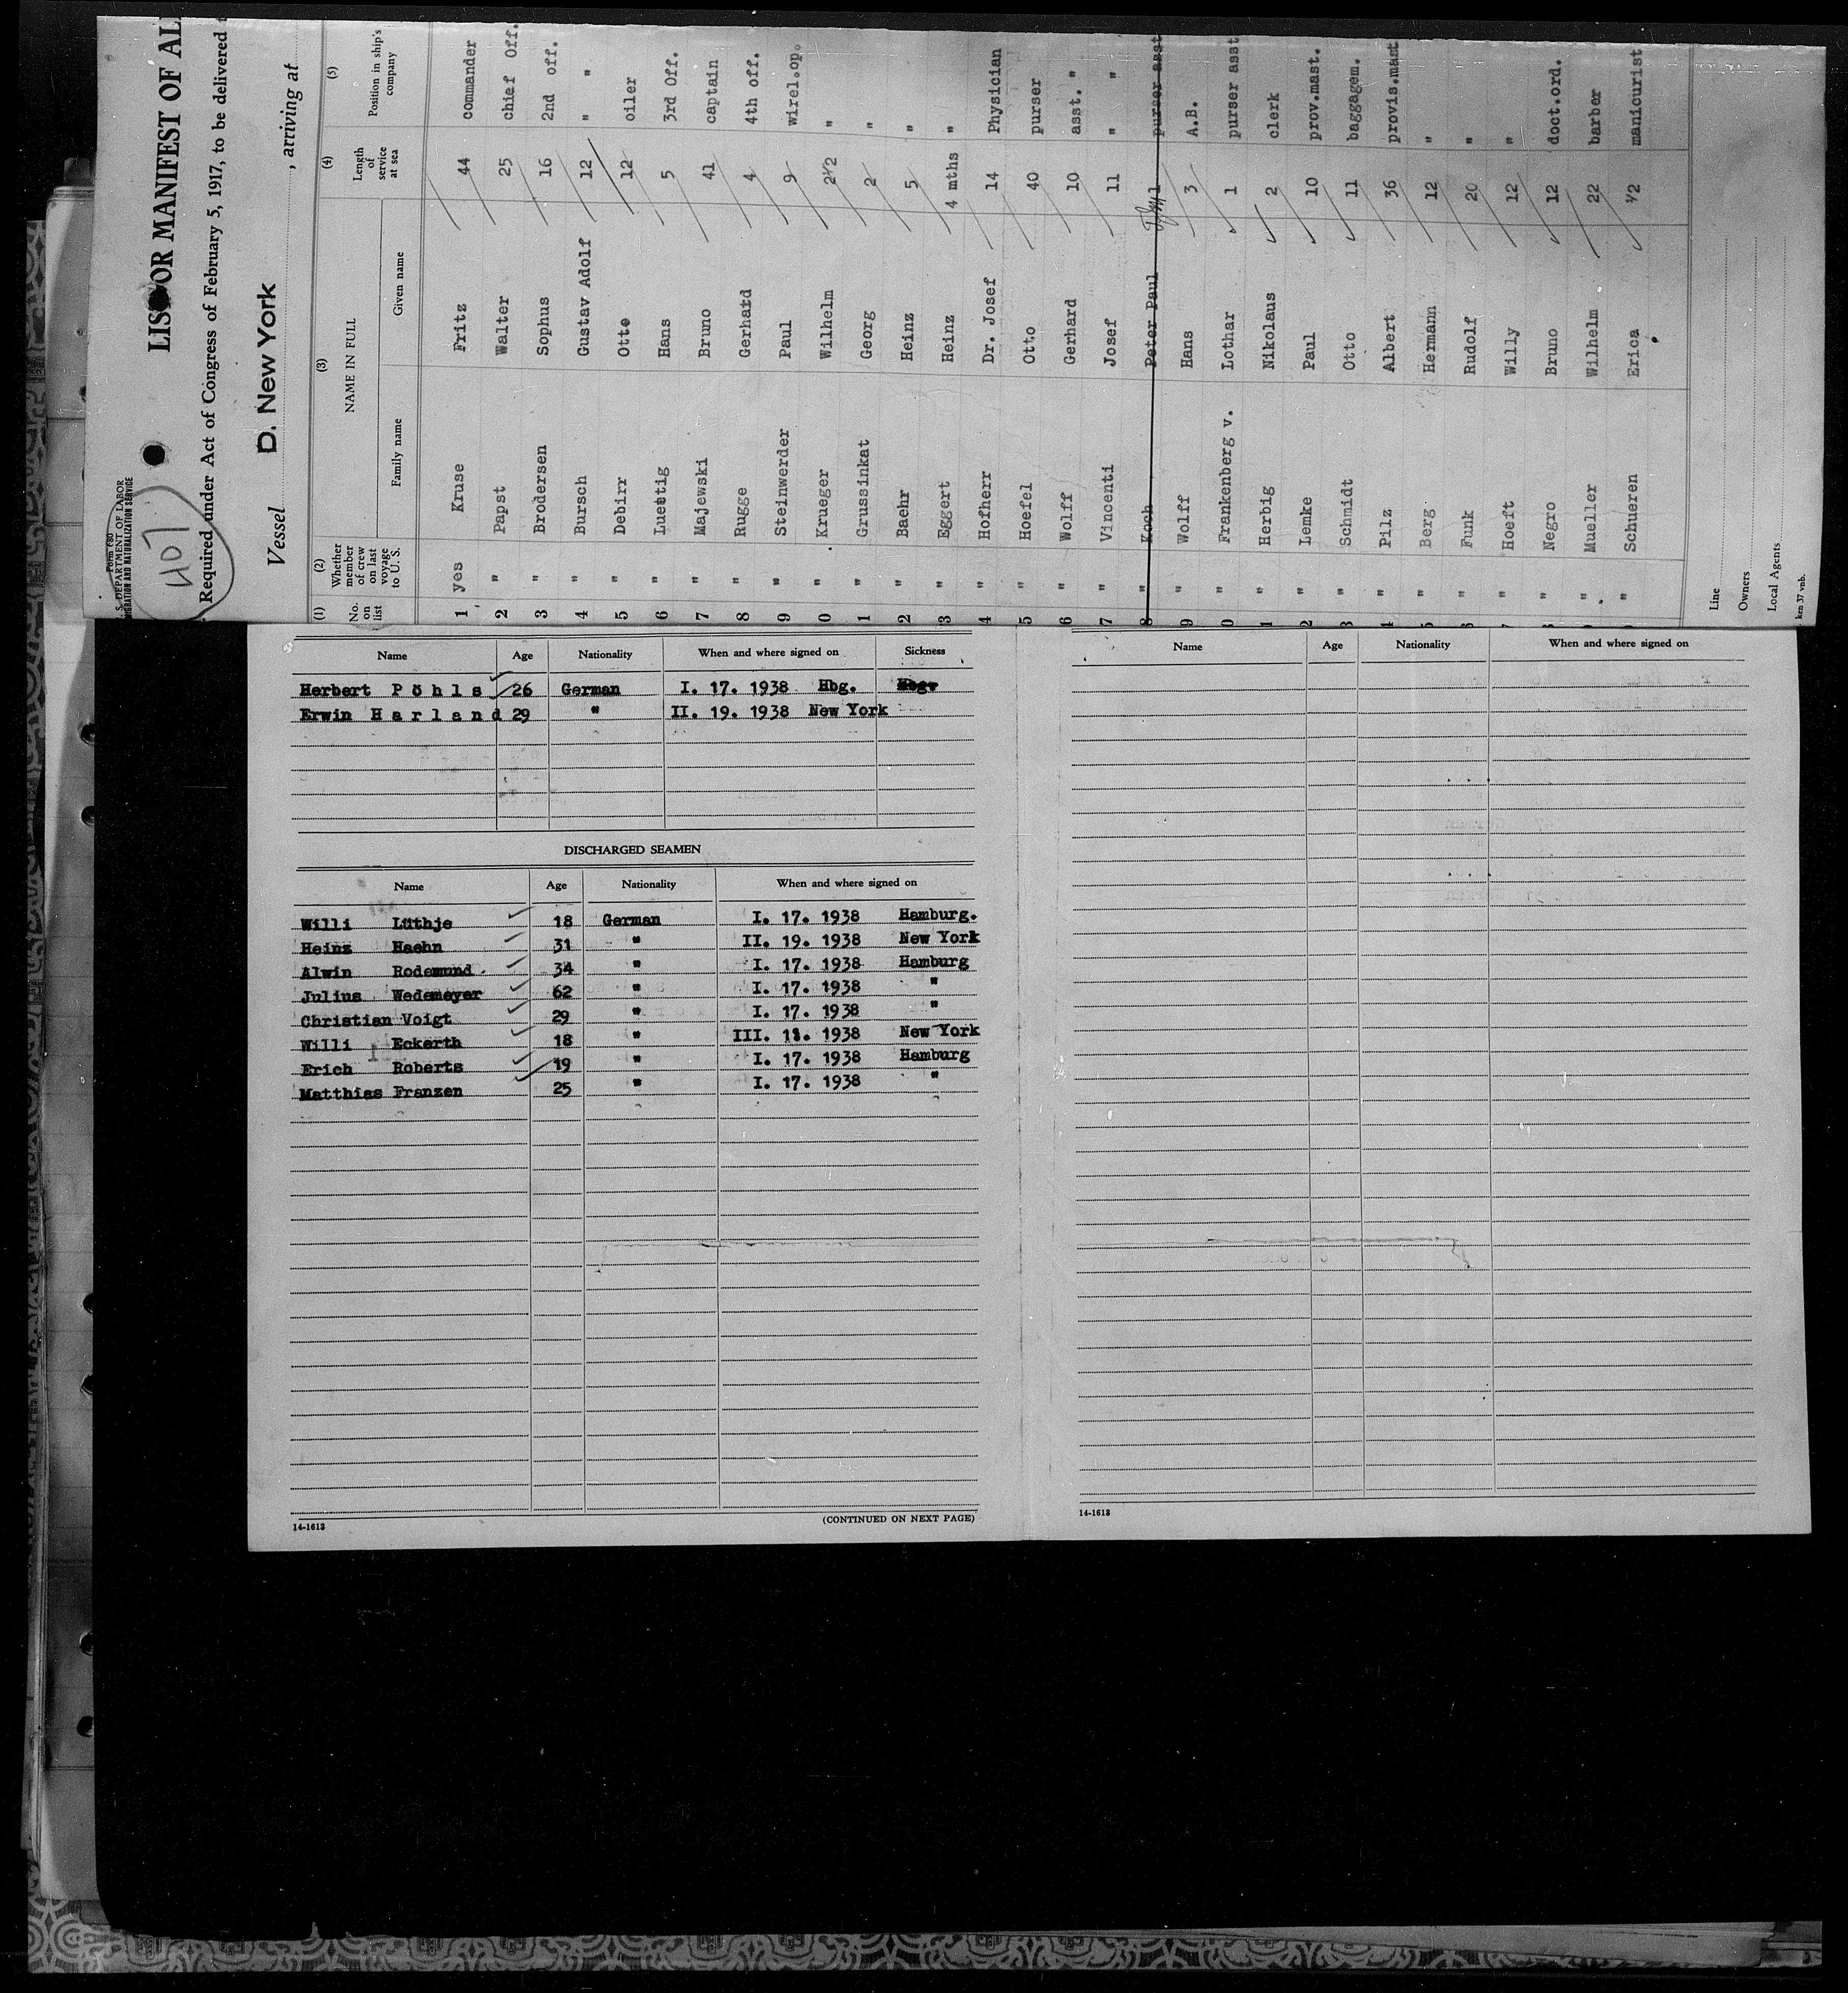 407
Form 680
U. S. DEPARTMENT OF LABOR
IMMIGRATION AND NATURALIZATION SERVICE
LIST OR MANIFEST OF AL
Required under Act of Congress of February 5, 1917, to be delivered
Vessel D. New York , arriving at
(1) (2) (3) (4) (5)
No. on list Whether member of crew on last voyage to U. S. NAME IN FULL Length of service at sea Position in ship's company
Family name Given name
1 yes Kruse Fritz 44 commander
2 " Papst Walter 25 chief Off.
3 " Brodersen Sophus 16 2nd off.
4 " Bursch Gustav Adolf 12 " "
5 " Debirr Otto 12 oiler
6 " Luettig Hans 5 3rd Off.
7 " Majewski Bruno 41 captain
8 " Rugge Gerhard 4 4th off.
9 " Steinwerder Paul 9 wirel.op.
0 " Krueger Wilhelm 2½ "
1 " Grussinkat Georg 2 "
2 " Baehr Heinz 5 "
3 " Eggert Heinz 4 mths "
4 " Hofherr Dr. Josef 14 Physician
5 " Hoefel Otto 40 purser
6 " Wolff Gerhard 10 asst. "
7 " Vincenti Josef 11 " "
8 " Koch Peter Paul 1 purser asst
9 " Wolff Hans 3 A.B.
0 " Frankenberg v. Lothar 1 purser asst
1 " Herbig Nikolaus 2 clerk
2 " Lemke Paul 10 prov.mast.
3 " Schmidt Otto 11 baggagem.
4 " Pilz Albert 36 provis.mast
5 " Berg Hermann 12 "
6 " Funk Rudolf 20 "
7 " Hoeft Willy 12 "
8 " Negro Bruno 12 doct.ord.
9 " Mueller Wilhelm 22 barber
" Schueren Erica ½ manicurist
Line
Owners
Local Agents
ken 37 vnb.
Name Age Nationality When and where signed on Sickness
Herbert Pöhls 26 German I. 17. 1938 Hbg. Hbg.
Erwin Harland 29 " II. 19. 1938 New York
DISCHARGED SEAMEN
Name Age Nationality When and where signed on
Willi Lüthje 18 German I. 17. 1938 Hamburg.
Heinz Haehn 31 " II. 19. 1938 New York
Alwin Rodemund. 34 " I. 17. 1938 Hamburg
Julius Wedemeyer 62 " I. 17. 1938 "
Christian Voigt 29 " I. 17. 1938 "
Willi Eckerth 18 " III. 11. 1938 New York
Erich Roberts 19 " I. 17. 1938 Hamburg
Matthias Franzen 25 " I. 17. 1938 "
14-1613 (CONTINUED ON NEXT PAGE)
Name Age Nationality When and where signed on
14-1613